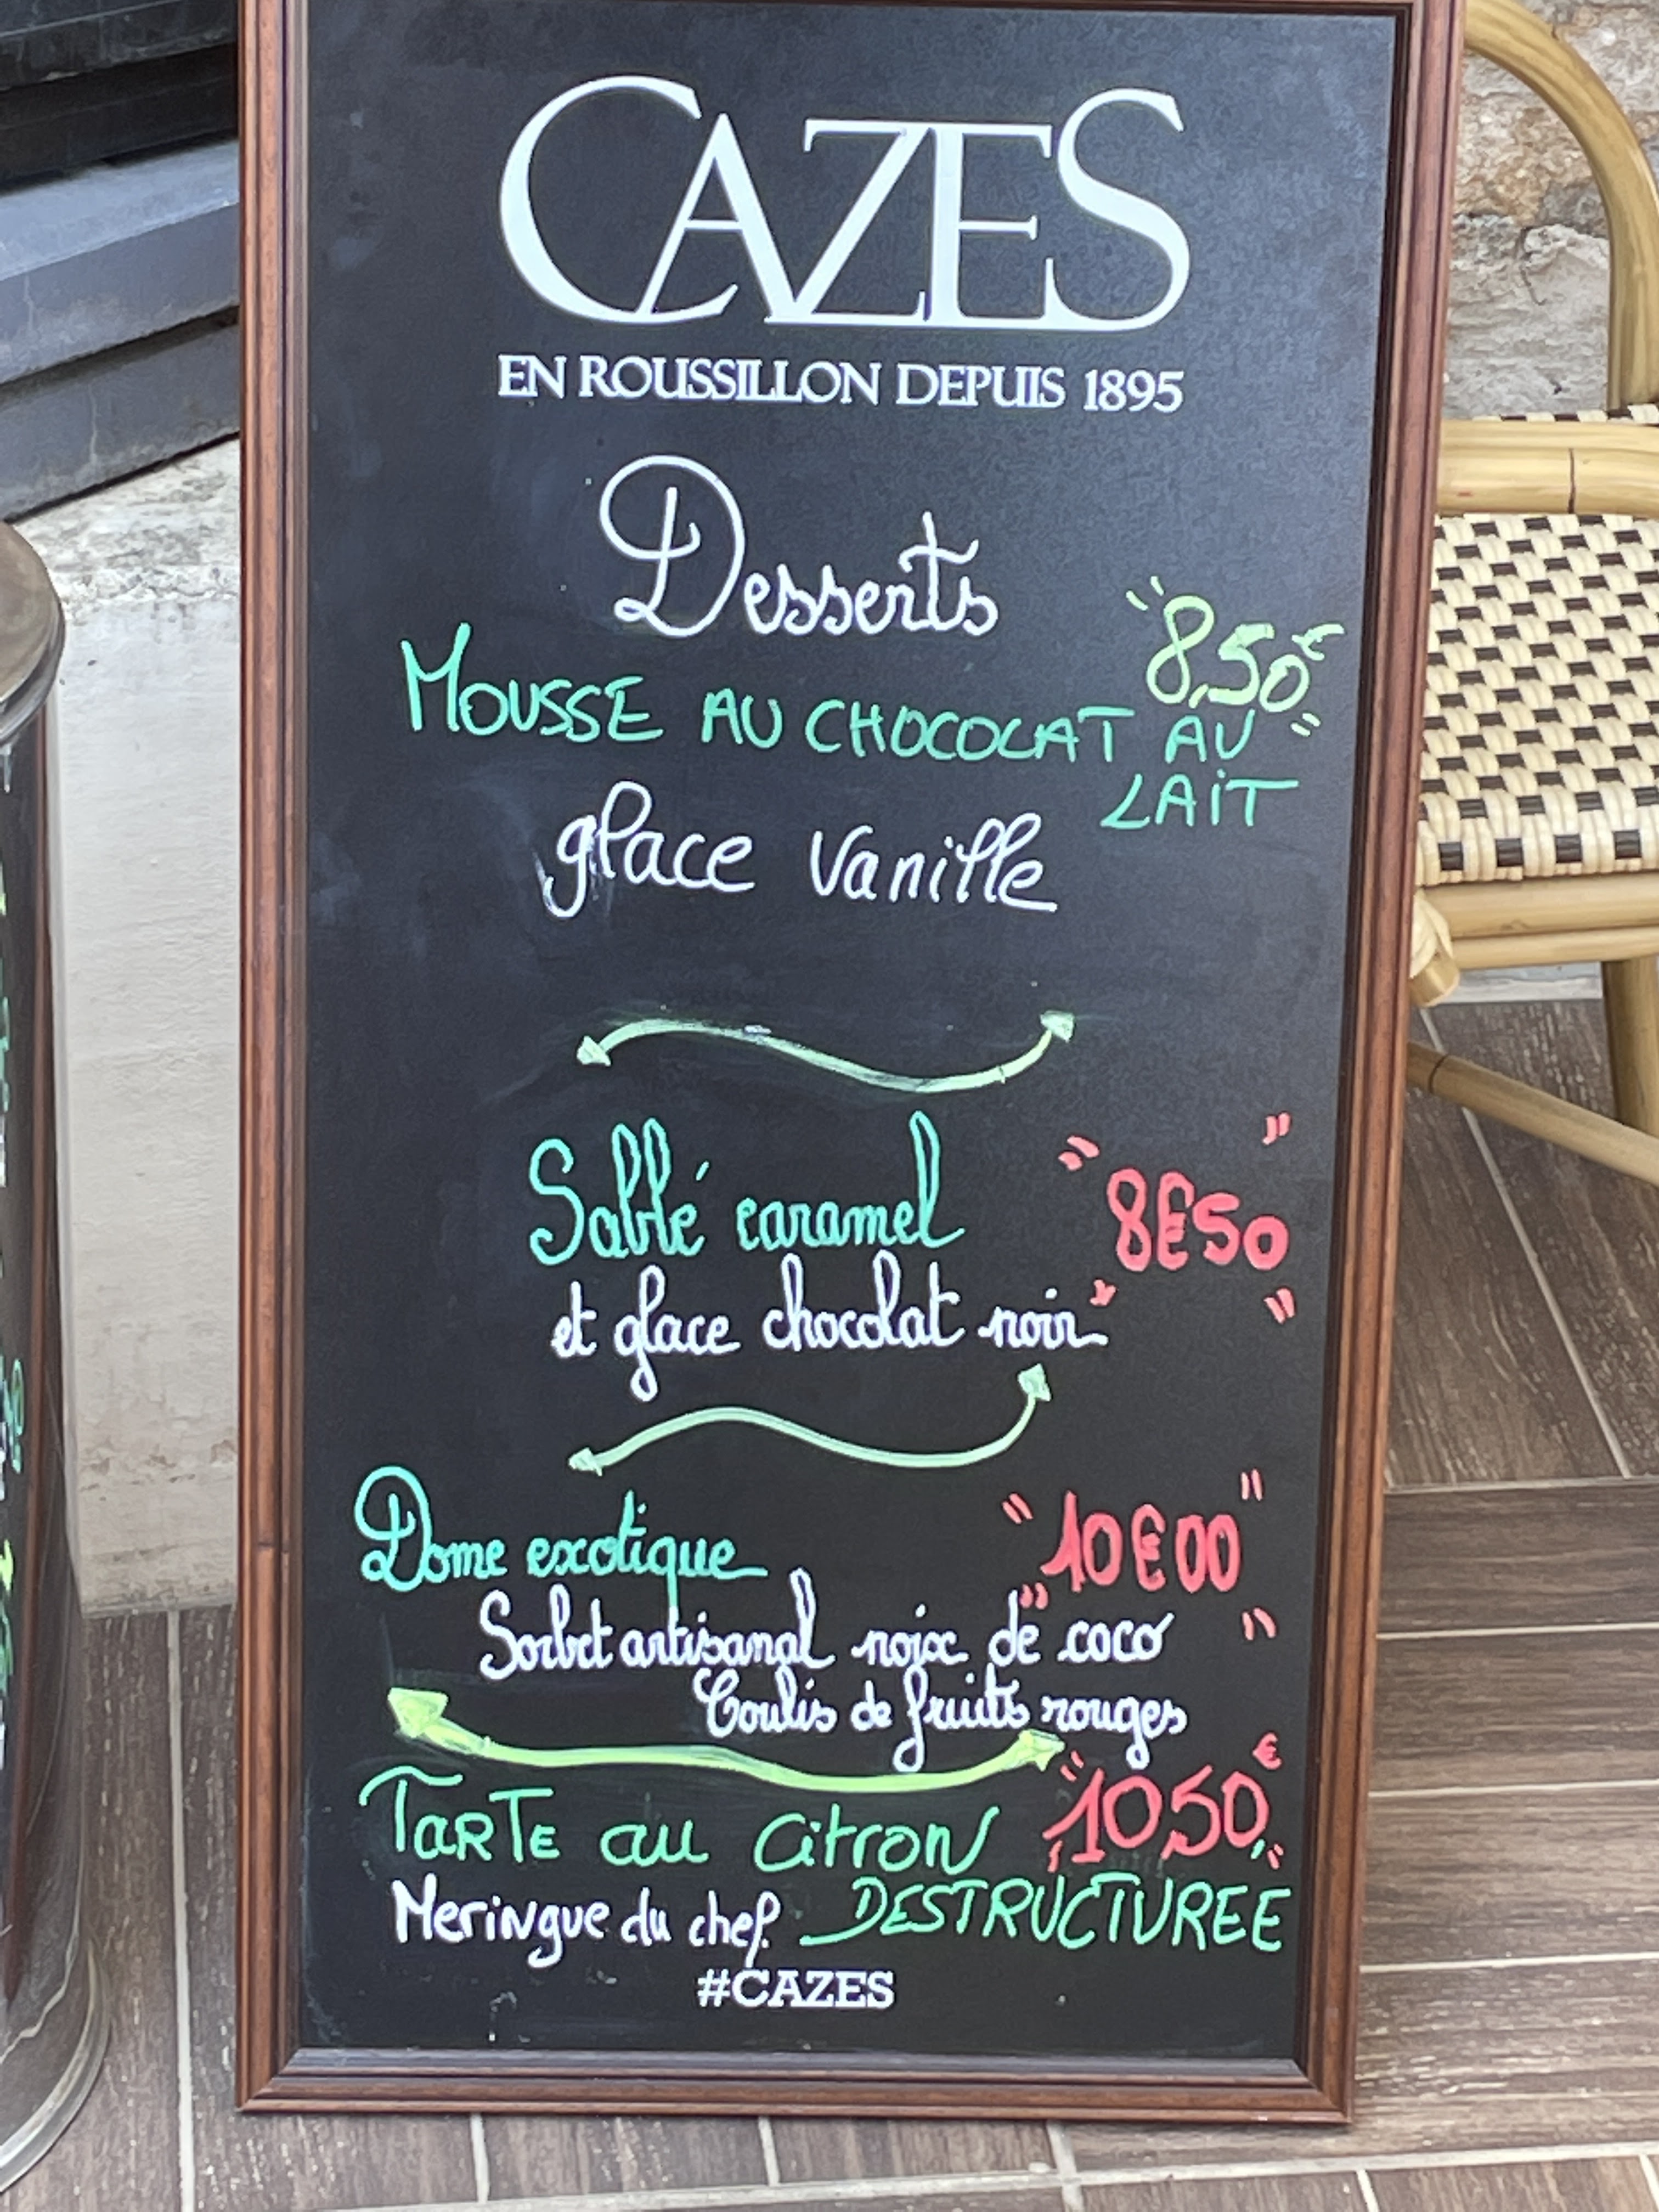 CAZES
EN ROUSSILLON DEPUIS 1895
Desserts
8,50€
MOUSSE AU CHOCOCAT AU
LAIT
glace vanille
Sablé caramel
8€50
et glace chocolat noir
Dome exotique
10€00
Sorbet artisanal noix de coco
Coulis de fruits rouges
TARTE au CitRON
10,50€
Meringue du chef. DESTRUCTUREE
#CAZES